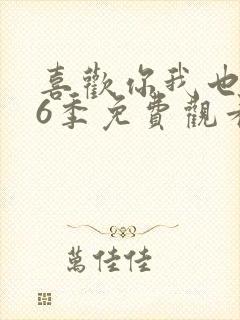 喜歡你我也
6季免費觀看
萬佳佳